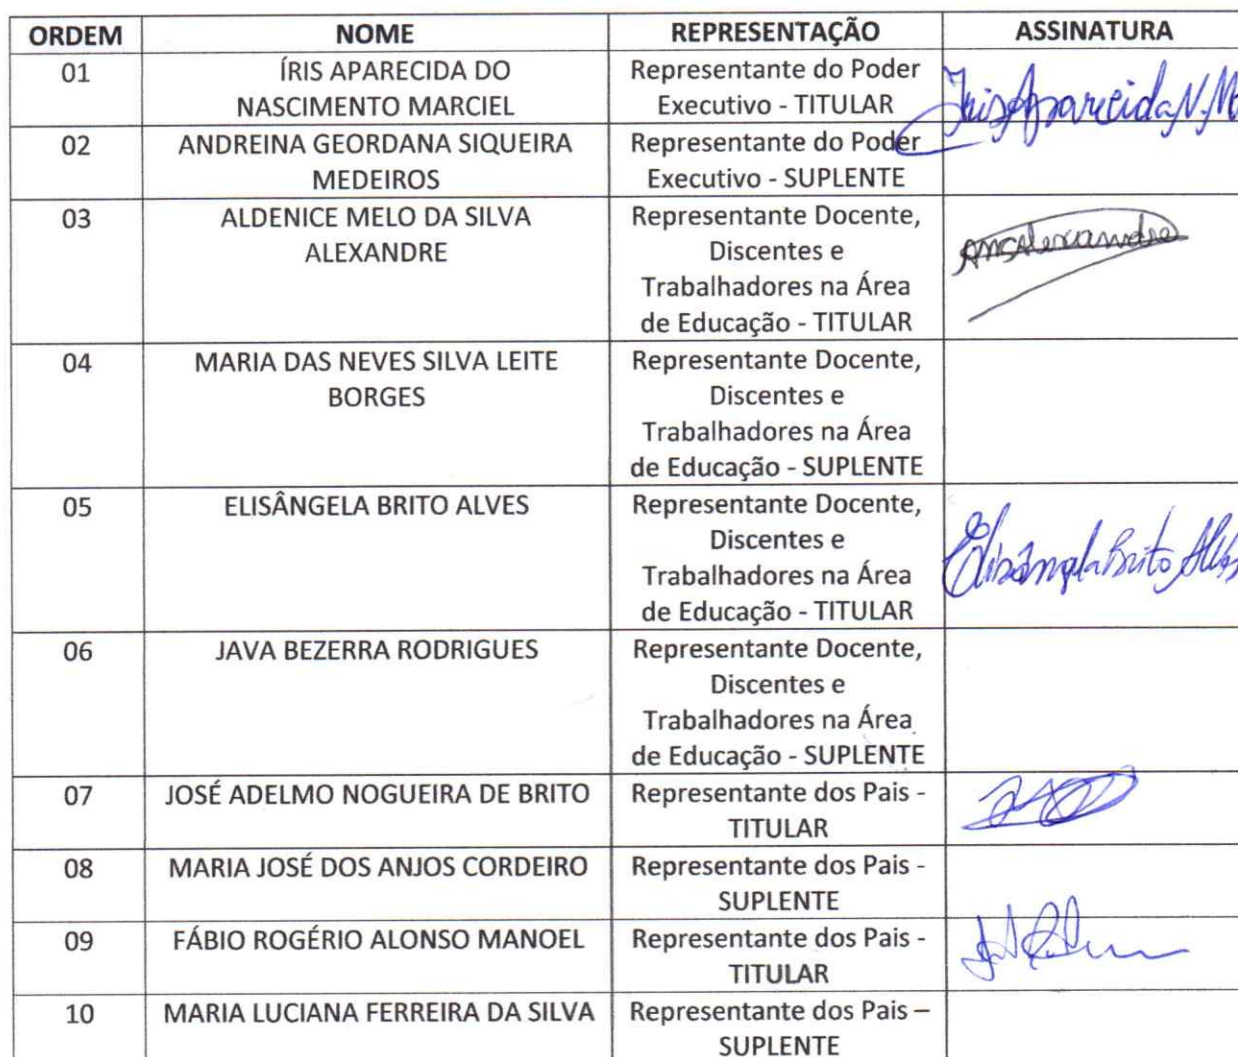 ORDEM NOME REPRESENTAÇÃO ASSINATURA
01 ÍRIS APARECIDA DO Representante do Poder
NASCIMENTO MARCIEL Executivo - TITULAR
Iris Aparecida N. M
02 ANDREINA GEORDANA SIQUEIRA Representante do Poder
MEDEIROS Executivo - SUPLENTE
03 ALDENICE MELO DA SILVA Representante Docente,
ALEXANDRE Discentes e
AMSAlexandre
Trabalhadores na Área
de Educação - TITULAR
04 MARIA DAS NEVES SILVA LEITE Representante Docente,
BORGES Discentes e
Trabalhadores na Área
de Educação - SUPLENTE
05 ELISÂNGELA BRITO ALVES Representante Docente,
Discentes e
Elisângela Brito Alves
Trabalhadores na Área
de Educação - TITULAR
06 JAVA BEZERRA RODRIGUES Representante Docente,
Discentes e
Trabalhadores na Área
de Educação - SUPLENTE
07 JOSÉ ADELMO NOGUEIRA DE BRITO Representante dos Pais -
TITULAR
08 MARIA JOSÉ DOS ANJOS CORDEIRO Representante dos Pais -
SUPLENTE
09 FÁBIO ROGÉRIO ALONSO MANOEL Representante dos Pais -
TITULAR
10 MARIA LUCIANA FERREIRA DA SILVA Representante dos Pais –
SUPLENTE